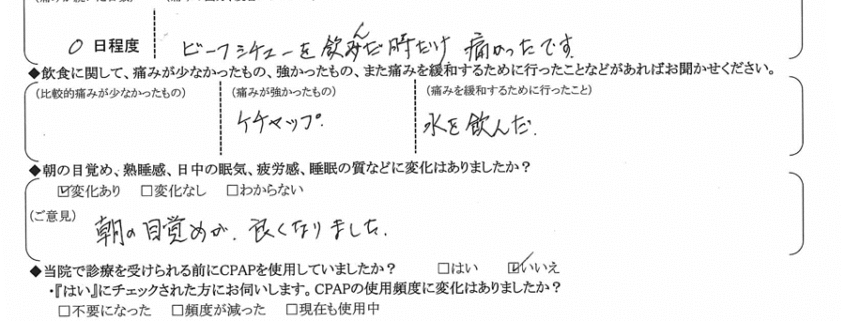 0 日程度 ビーフシチューを飲んだ時だけ 痛かったです.
◆飲食に関して、痛みが少なかったもの、強かったもの、また痛みを緩和するために行ったことなどがあればお聞かせください。
(比較的痛みが少なかったもの) (痛みが強かったもの) (痛みを緩和するために行ったこと)
ケチャップ. 水を飲んだ.
◆朝の目覚め、熟睡感、日中の眠気、疲労感、睡眠の質などに変化はありましたか?
☑変化あり □変化なし □わからない
(ご意見) 朝の目覚めが. 良くなりました.
◆当院で診療を受けられる前にCPAPを使用していましたか? □はい ☑いいえ
・『はい』にチェックされた方にお伺いします。CPAPの使用頻度に変化はありましたか?
□不要になった □頻度が減った □現在も使用中